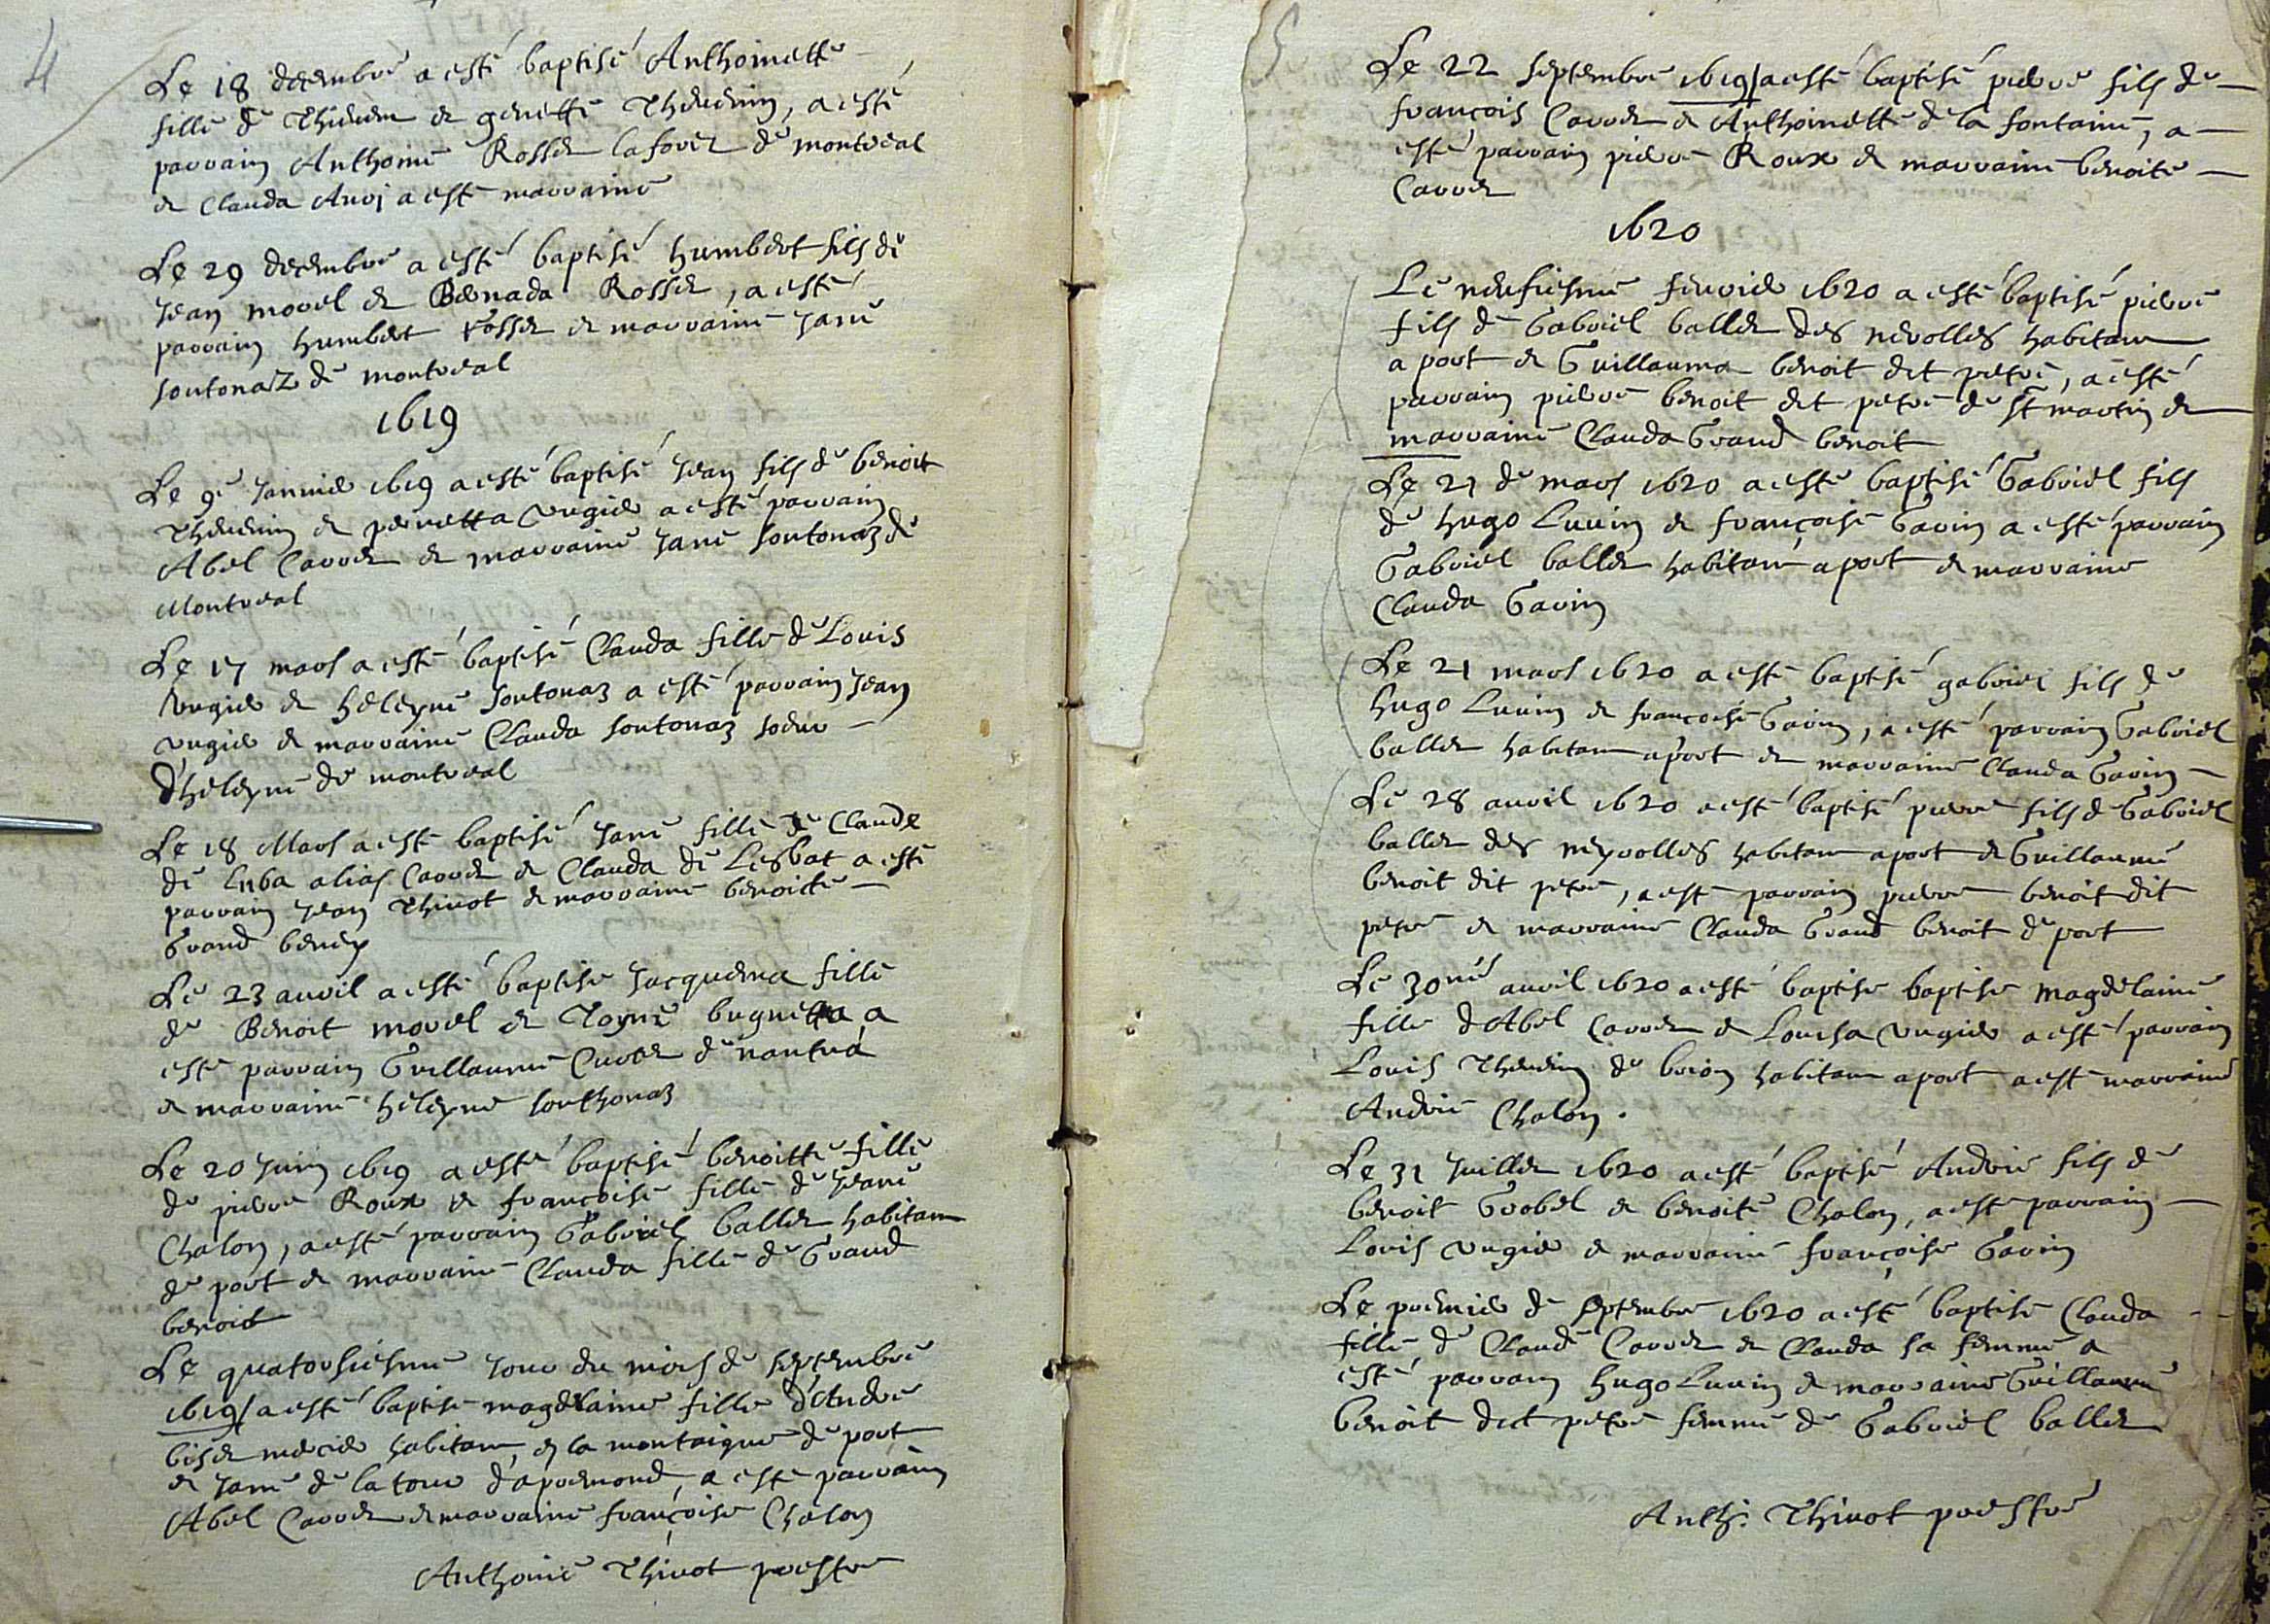 4
Le 18 decembre a esté baptisé Anthoinette
fille de Thievem et genette Thevenin, a esté
parrain Anthoine Rosset la forez de montreal
et Clauda Anri a esté marraine
Le 29 decembre a esté baptisé humbert fils de
Jean morel et Bernada Rosset, a esté
parrain humbert Rosset et marraine Jane
sontonaz de montreal
1619
Le 9e Janvier 1619 a esté baptisé Jean fils de benoit
Thevenin et pernetta vugier a esté parrain
Abel Carrer et marraine Jane sontonaz de
Montreal
Le 17 mars a esté baptisé Clauda fille de Louis
vugier et heleyne sontonaz a esté parrain Jean
vugier et marraine Clauda sontonaz soeur
d'heleyne de montreal
Le 18 Mars a esté baptisé Jane fille de Claude
de Luba alias Carrer et Clauda de Lesbat a esté
parrain Jean Thivot et marraine benoicte
Grand beney
Le 23 avril a esté baptise Jacquema fille
de Benoit morel et Toyne bugnetta a
esté parrain Guillaume Cuvet de nantua
et marraine heleyne sonthonaz
Le 20 Juin 1619 a esté baptisé benoitte fille
de pierre Roux et françoise fille de Jeane
Chalon, a esté parrain Gabriel ballet habitant
de port et marraine Clauda fille de Grand
benoit
Le quatorsiesme Jour du mois de septembre
1619/ a esté baptise magdelaine fille d'Andre
biset mercier habitant en la montaigne de port
et Jane de la tour d'apremond, a este parrain
Abel Carrer et marraine françoise Chalon
Anthoine Thivot prestre
5
Le 22 septembre 1619/ a esté baptisé pierre fils de
françois Carrer et Anthoinette de la fontaine, a
esté parrain pierre Roux et marraine benoite
Carrer
1620
Le neufiesme fevrier 1620 a esté baptisé pierre
fils de Gabriel ballet des nerolles habitant
a port et Guillauma benoit dit petre, a esté
parrain pierre benoit dit petre de st martin et
marraine Clauda Grand benoit
Le 21 de mars 1620 a esté baptisé Gabriel fils
de hugo Luvin et françoise Gavin a esté parrain
Gabriel ballet habitant a port et marraine
Clauda Gavin
Le 21 mars 1620 a esté baptisé gabriel fils de
hugo Luvin et francoise Gavin, a esté parrain Gabriel
ballet habitant a port et marraine Clauda Gavin
Le 28 avril 1620 a esté baptisé pierre fils de Gabriel
ballet des neyrolles habitant a port et Guillaume
benoit dit petre, a esté parrain pierre benoit dit
petre et marraine Clauda Grand benoit de port
Le 30me avril 1620 a esté baptise baptise magdelaine
fille d'Abel Carrer et Louisa vugier a esté parrain
Louis Thevenin de brion habitant a port a esté marraine
Andrie Chalon.
Le 31 Juillet 1620 a esté baptisé Andrie fils de
benoit Grobel et benoite Chalon, a esté parrain
Louis vugier et marraine françoise Gavin
Le premier de septembre 1620 a esté baptise Clauda
fille de Claude Carrer et Clauda sa femme a
esté parrain hugo Luvin et marraine Guillaume
benoit dit petre femme de Gabriel ballet
Anth. Thivot prestre